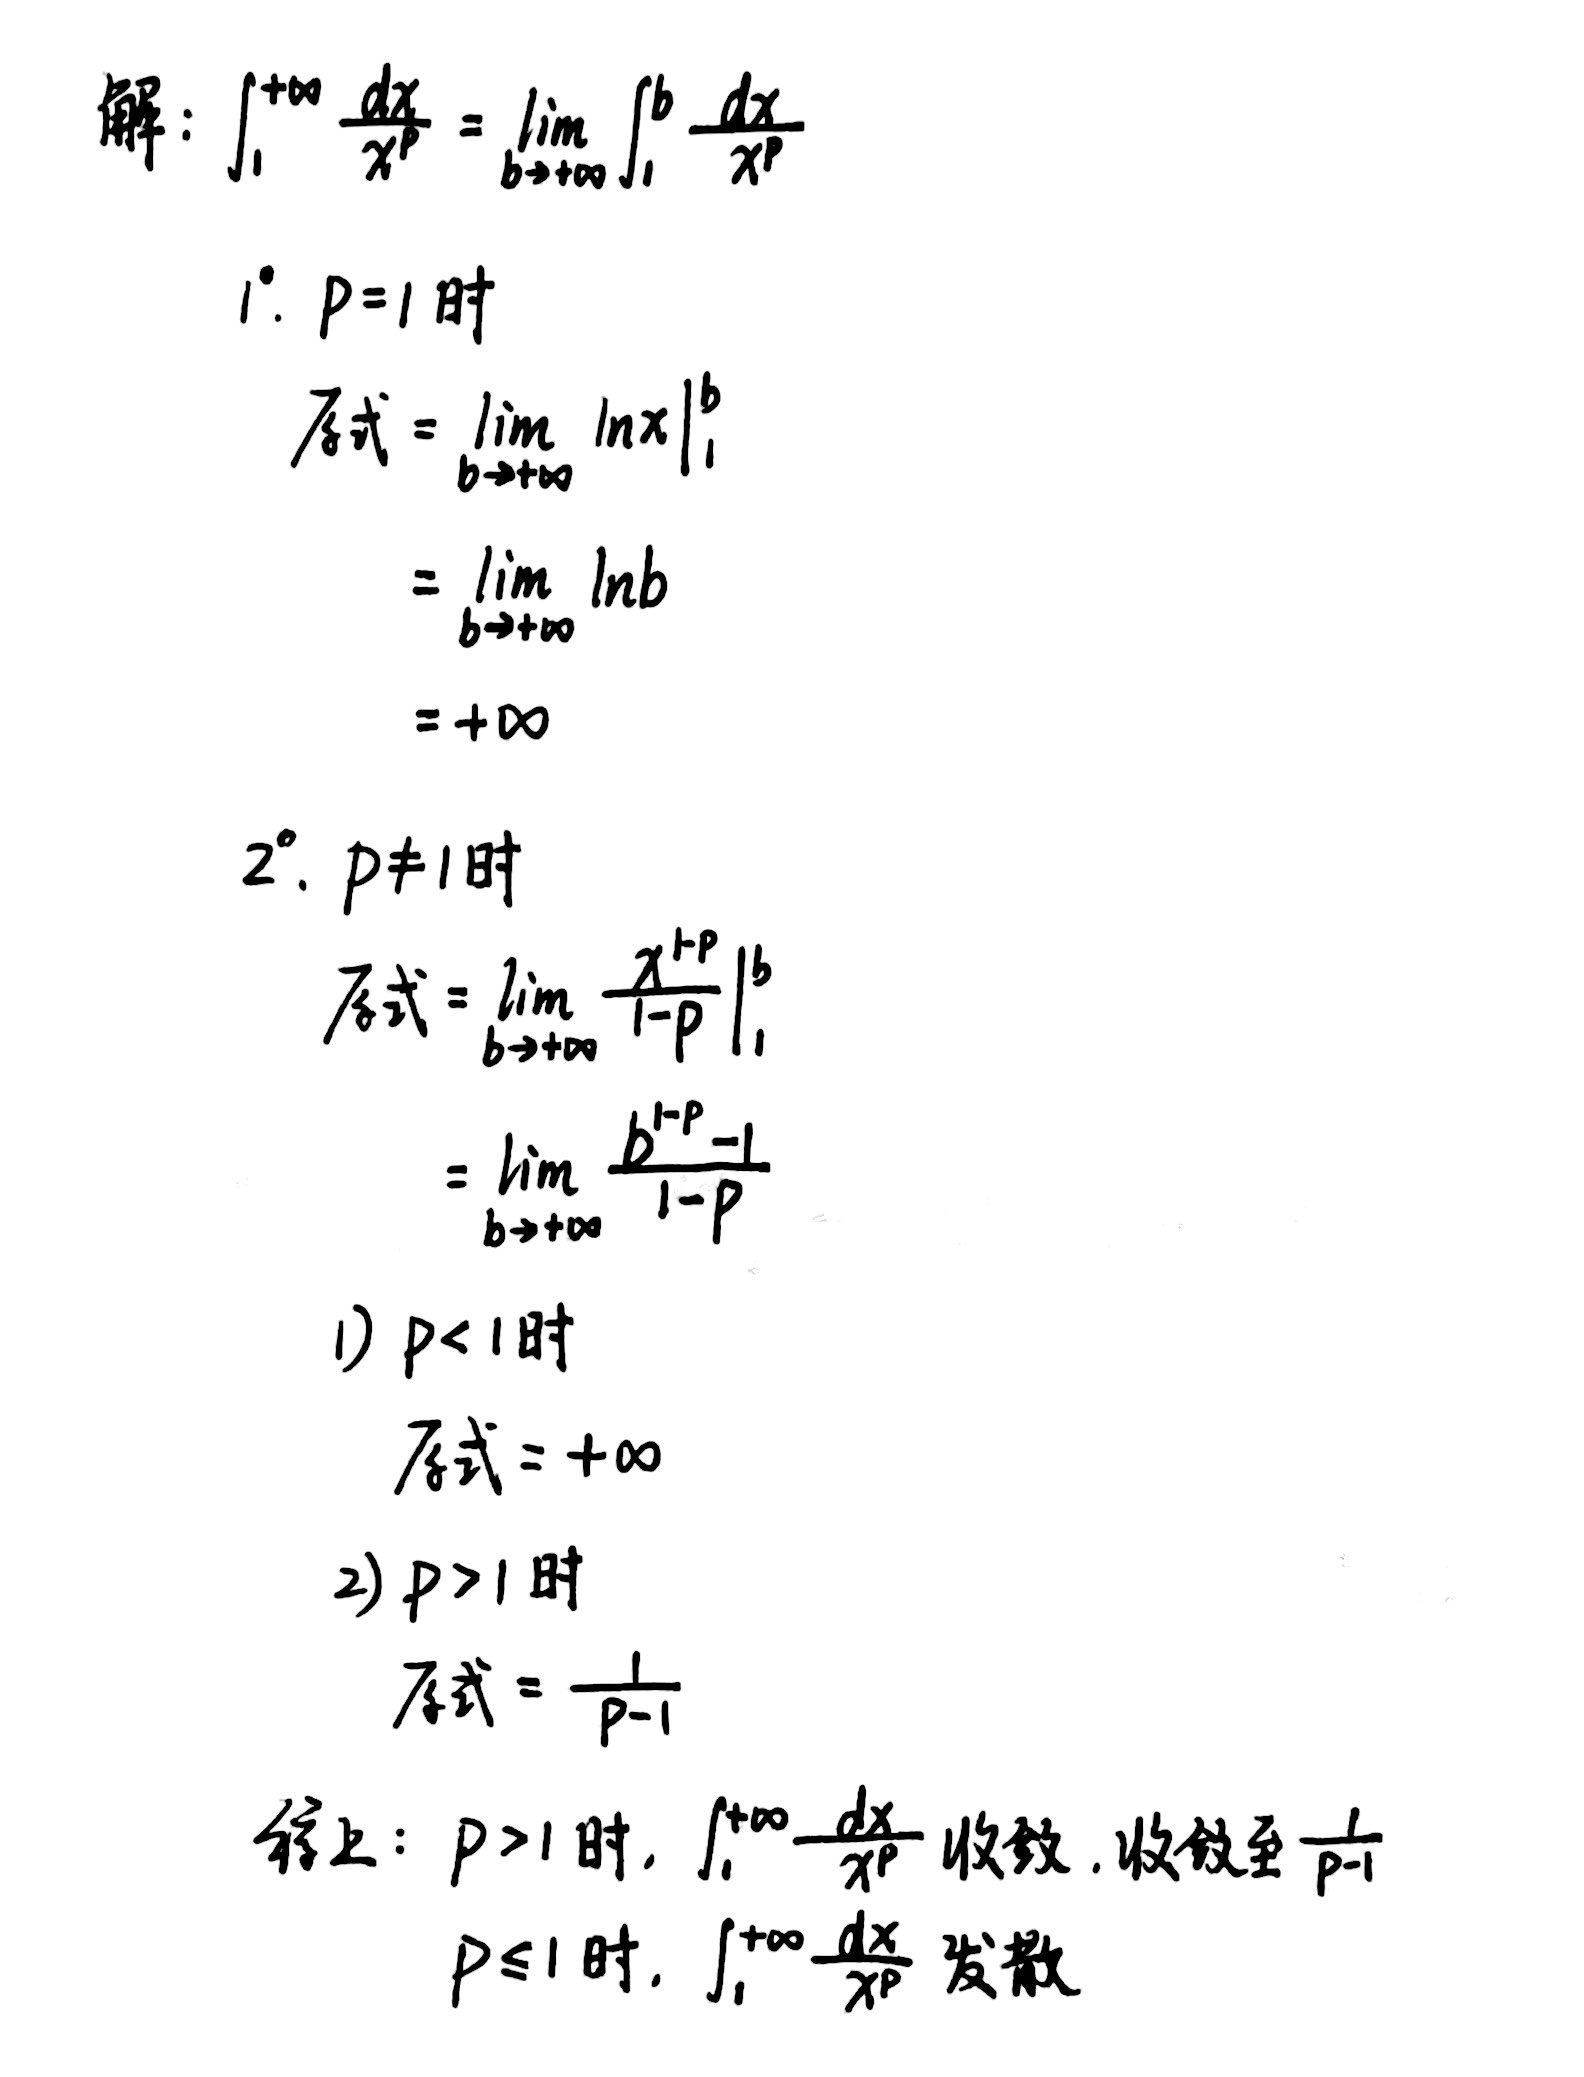 解：∫₁^{+∞} dx/x^p = lim_{b→+∞} ∫₁^b dx/x^p
1°. p=1时
原式 = lim_{b→+∞} lnx|₁^b
= lim_{b→+∞} lnb
= +∞
2°. p≠1时
原式 = lim_{b→+∞} x^{1-p}/(1-p)|₁^b
= lim_{b→+∞} (b^{1-p}-1)/(1-p)
1) p<1时
原式 = +∞
2) p>1时
原式 = 1/(p-1)
综上：p>1时, ∫₁^{+∞} dx/x^p 收敛, 收敛至 1/(p-1)
p≤1时, ∫₁^{+∞} dx/x^p 发散